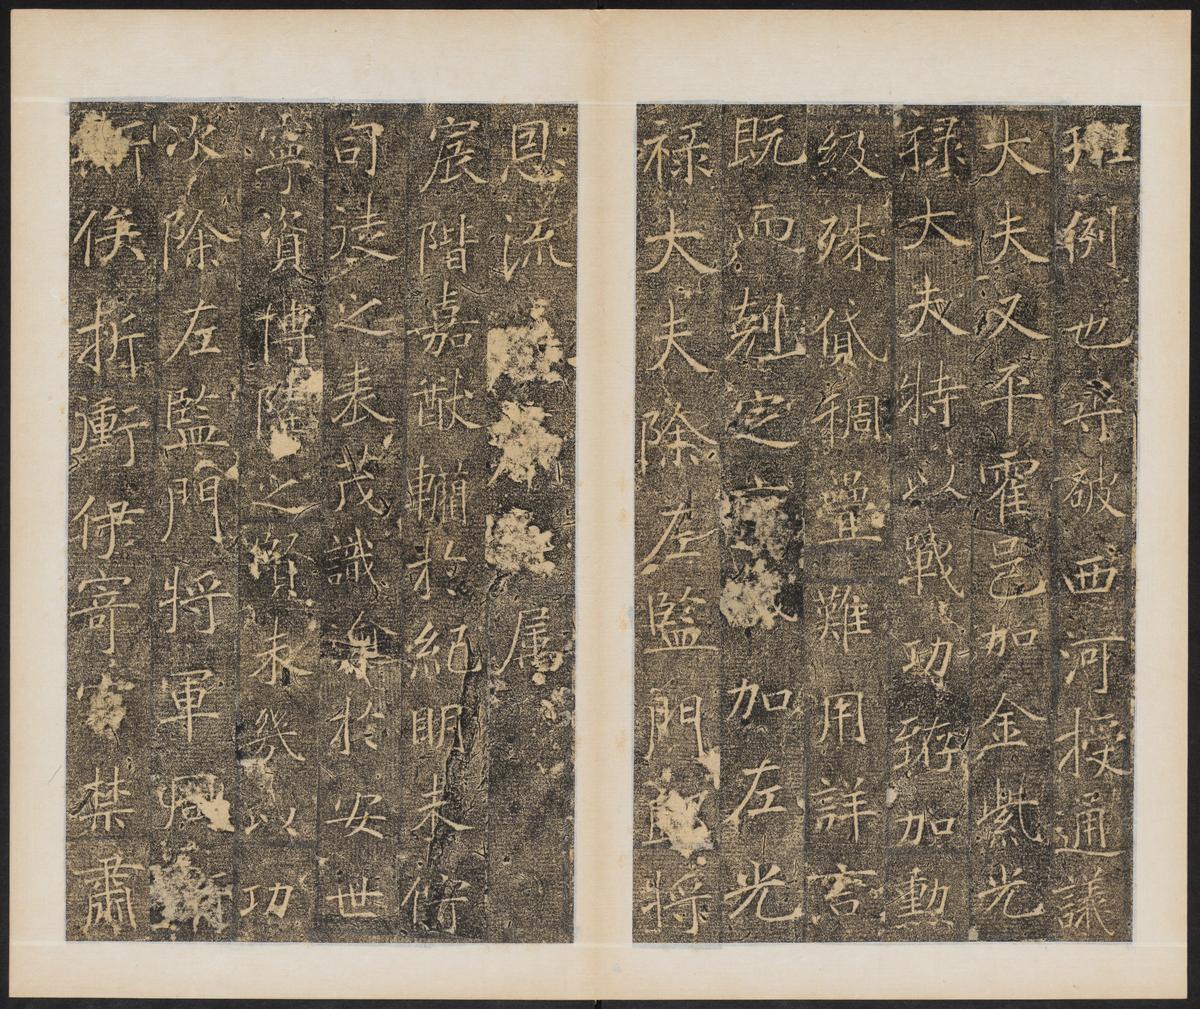 班例也尋敍西河授通議
大夫又平霍邑加金紫光
祿大夫特以戰功䟽加勳
級殊貸稠疊難用詳言
既而剋定京城加左光
祿大夫除左監門將
恩流 屬
宸階嘉猷輶於紀明未脩
司徒之表茂識逾於安世
寧資博陸之賢未幾以功
次除左監門將軍
侯折衝俟寄禁肅